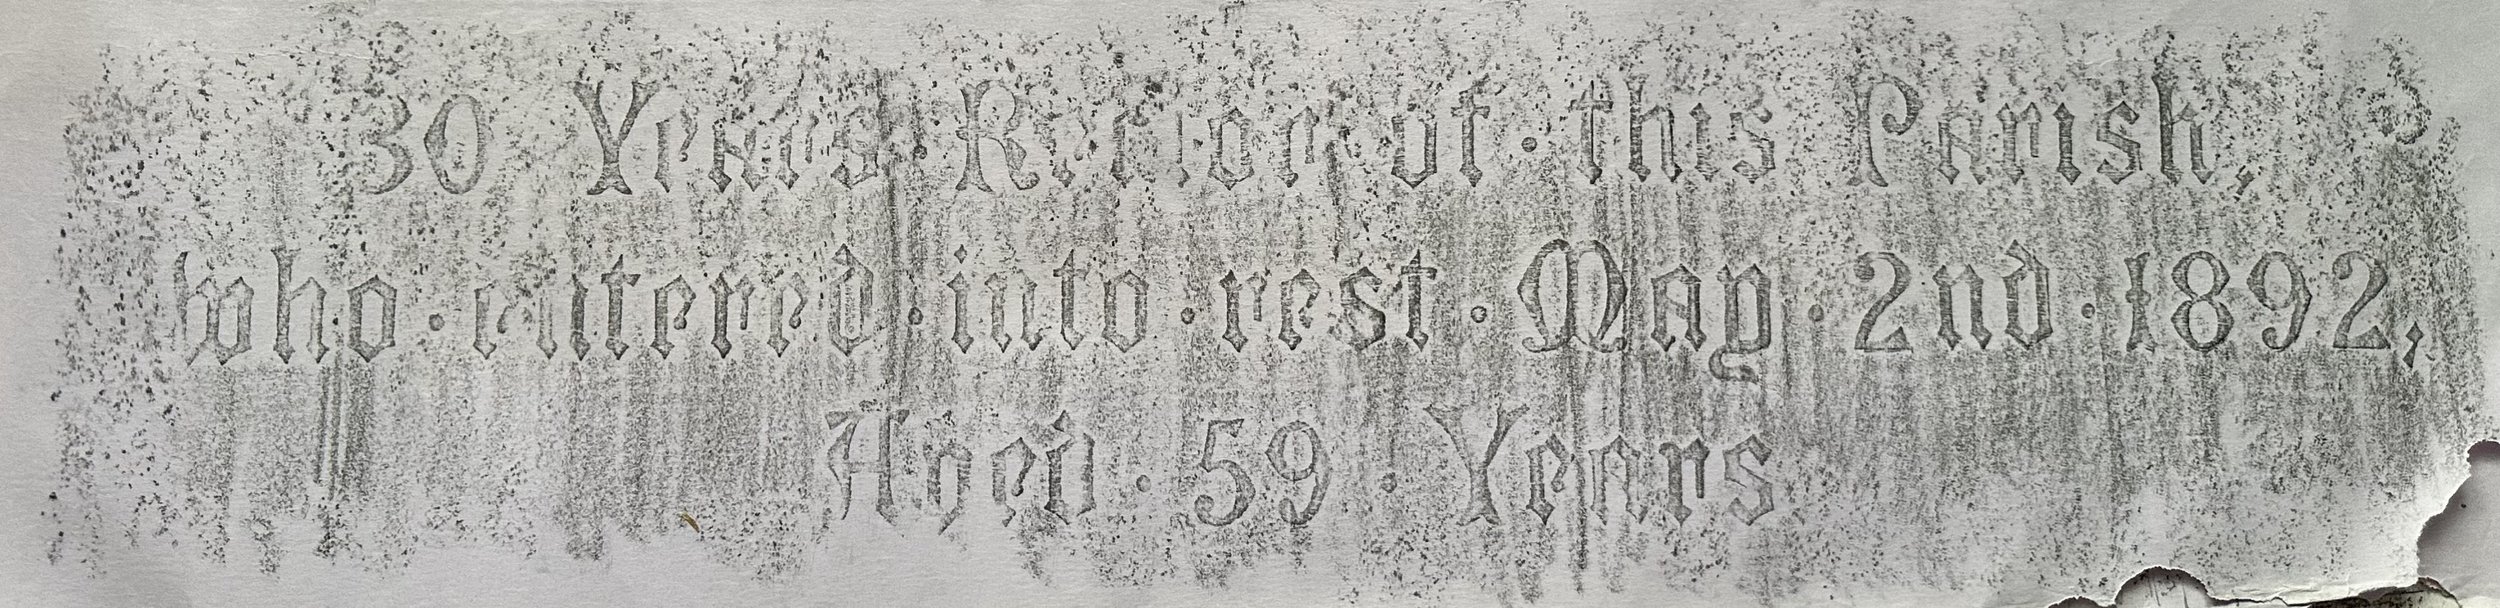 30 Years Rector of · this Parish,
who · entered · into · rest · May · 2nd · 1892,
Aged · 59 · Years